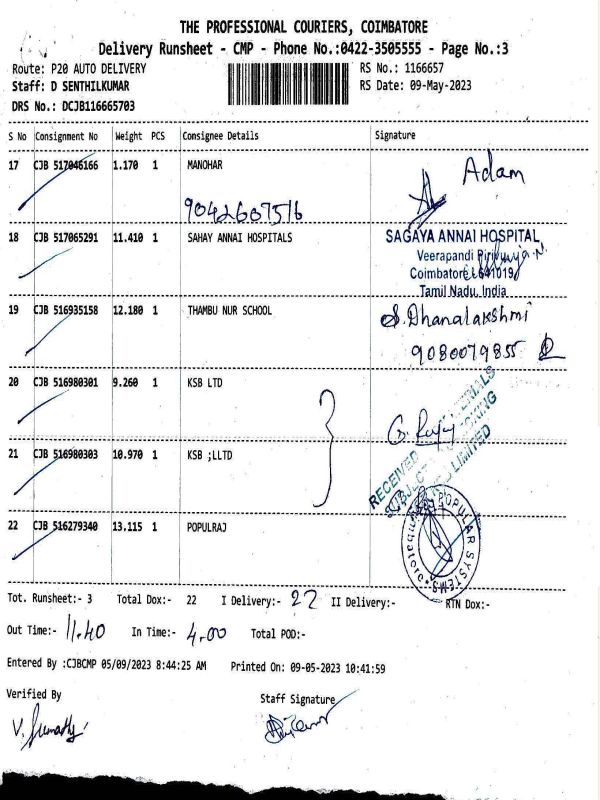 THE PROFESSIONAL COURIERS, COIMBATORE
Delivery Runsheet - CMP - Phone No.:0422-3505555 - Page No.:3
Route: P20 AUTO DELIVERY RS No.: 1166657
Staff: D SENTHILKUMAR RS Date: 09-May-2023
DRS No.: DCJB116665703
S No Consignment No Weight PCS Consignee Details Signature
17 CJB 517046166 1.170 1 MANOHAR Adam
9042607516
18 CJB 517065291 11.410 1 SAHAY ANNAI HOSPITALS SAGAYA ANNAI HOSPITAL
Veerapandi Pirivu
Coimbatore 641019
Tamil Nadu, India
19 CJB 516935158 12.180 1 THAMBU NUR SCHOOL S. Dhanalakshmi
9080079855
20 CJB 516980301 9.260 1 KSB LTD
21 CJB 516980303 10.970 1 KSB ;LLTD RECEIVED
LIMITED
22 CJB 516279340 13.115 1 POPULRAJ POPULAR SYSTEMS Coimbatore
Tot. Runsheet:- 3 Total Dox:- 22 I Delivery:- 22 II Delivery:- RTN Dox:-
Out Time:- 11.40 In Time:- 4.00 Total POD:-
Entered By :CJBCMP 05/09/2023 8:44:25 AM Printed On: 09-05-2023 10:41:59
Verified By Staff Signature